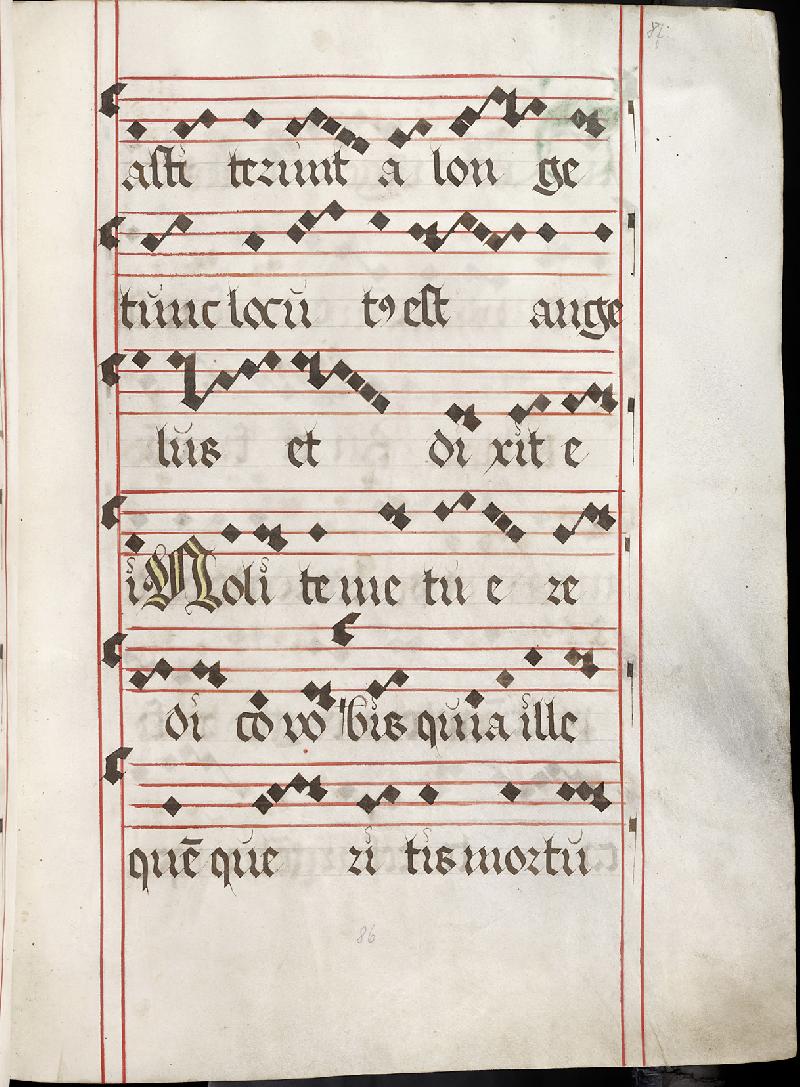 asti terunt a lon ge
tūnc locū tꝰ est ange
lus et di xit e
is Noli te me tu e re
di co vo bis quia ille
quē que ri tis mortū
86